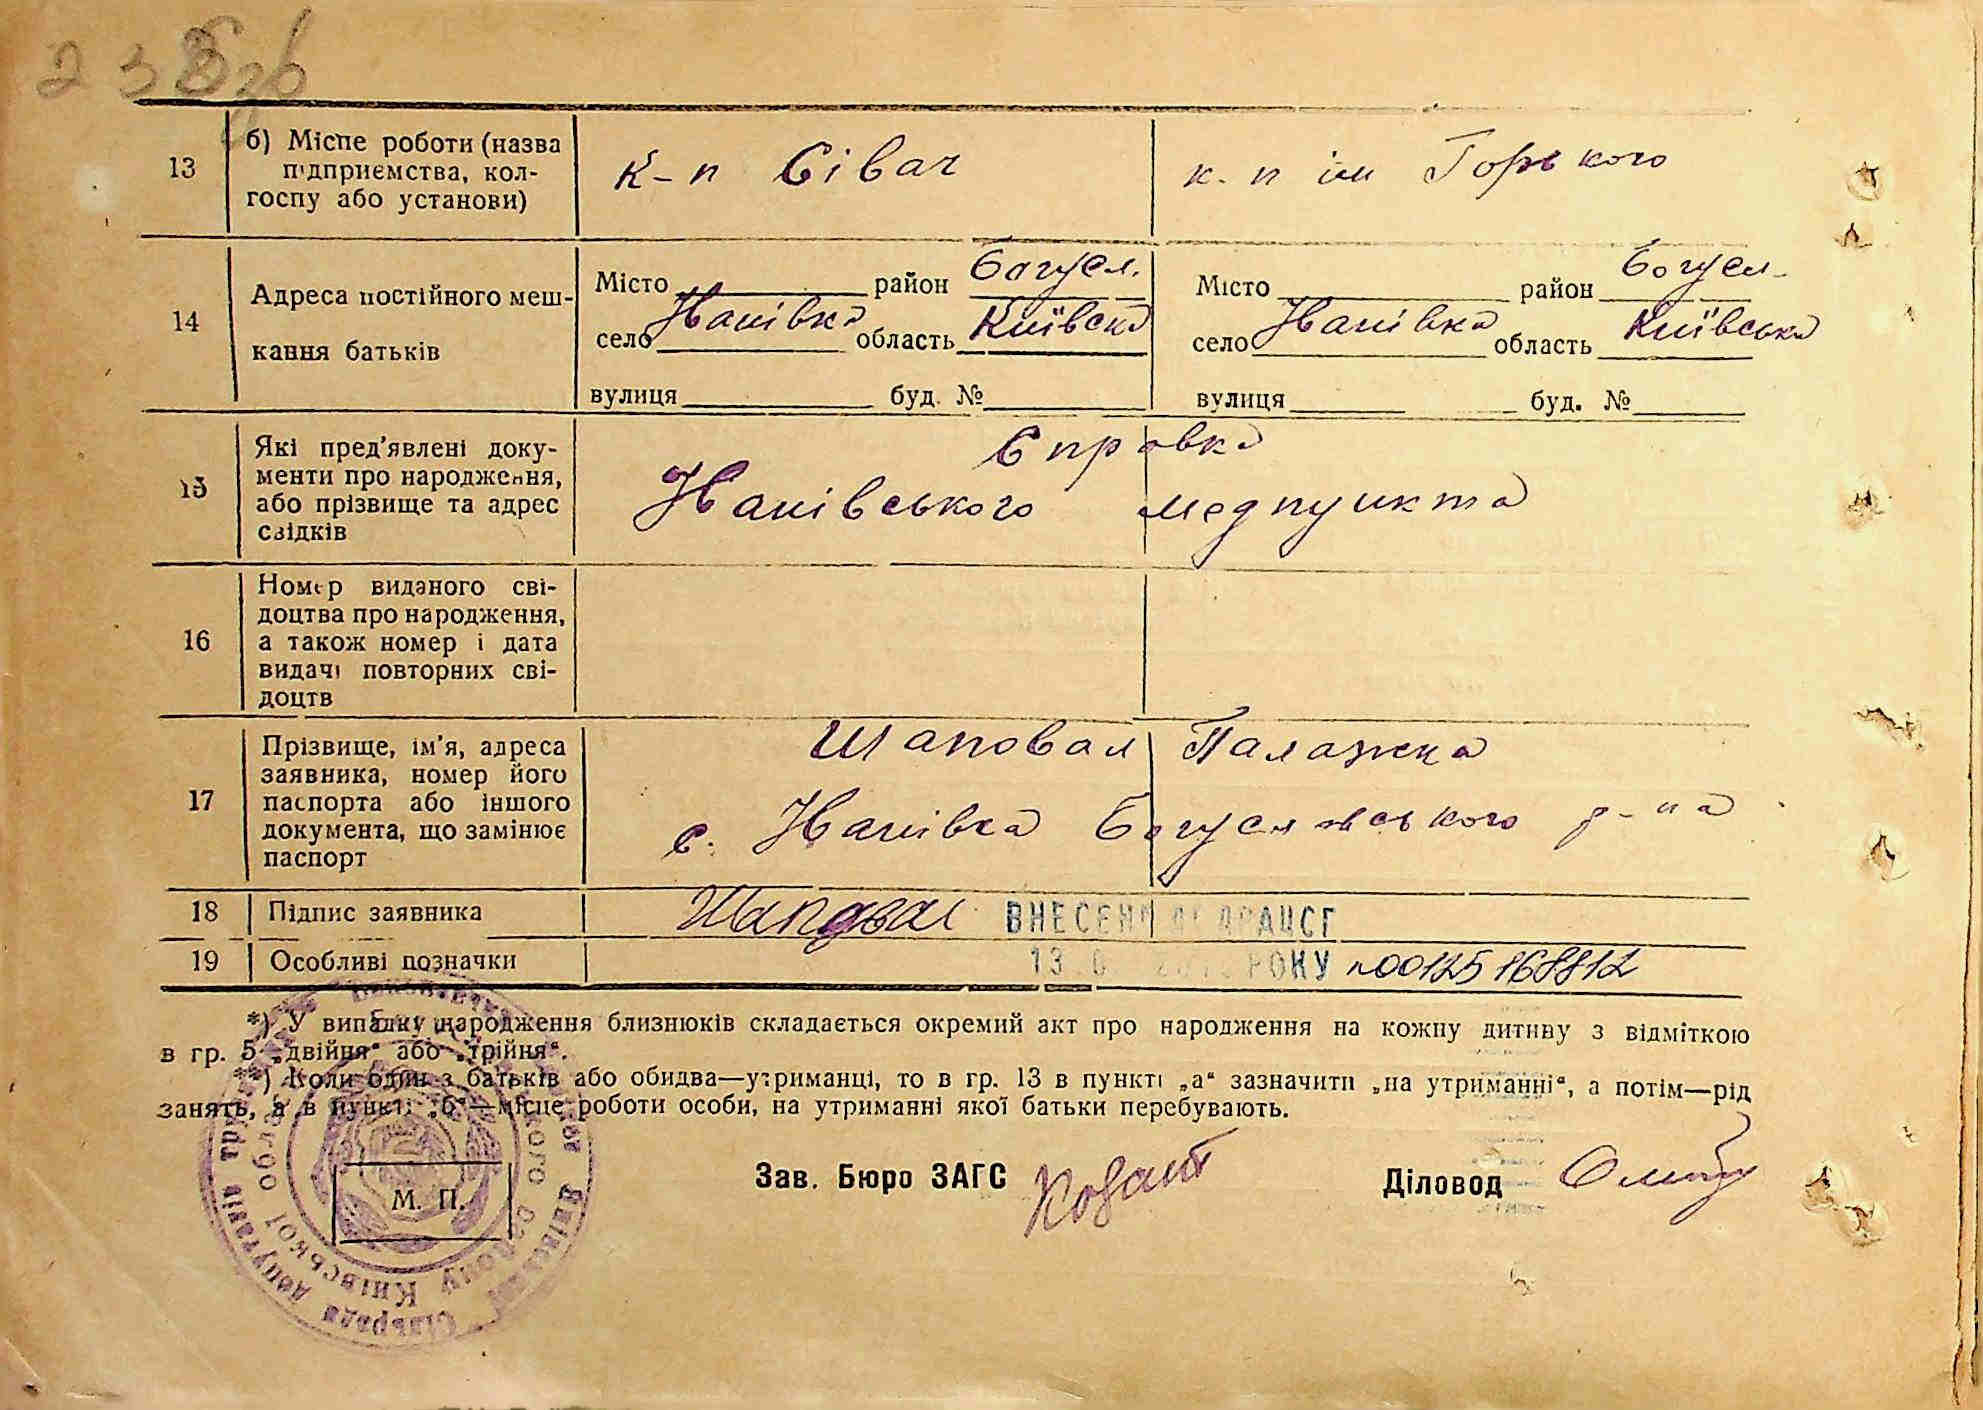 13 б) Місце роботи (назва
підприємства, кол-
госпу або установи)
к-п Сівач
к-п ім Горького
14 Адреса постійного меш-
кання батьків
Місто район Богусл.
село область Київська
вулиця буд. №
Місто район Богусл-
село область Київська
вулиця буд. №
15 Які пред'явлені доку-
менти про народження,
або прізвище та адрес
свідків
Справка
медпункта
16 Номер виданого сві-
доцтва про народження,
а також номер і дата
видачі повторних сві-
доцтв
17 Прізвище, ім'я, адреса
заявника, номер його
паспорта або іншого
документа, що замінює
паспорт
Шаповал Палажка
с. Богуславського р-на
18 Підпис заявника Шаповал
ВНЕСЕНО ДО ДРАЦСГ
19 Особливі позначки
РОКУ
*) У випадку народження близнюків складається окремий акт про народження на кожну дитину з відміткою
в гр. 5 „двійня“ або „трійня“.
**) Коли один з батьків або обидва—утриманці, то в гр. 13 в пункті „а“ зазначити „на утриманні“, а потім—рід
занять, а в пункті „б“—місце роботи особи, на утриманні якої батьки перебувають.
М. П.
Зав. Бюро ЗАГС
Діловод